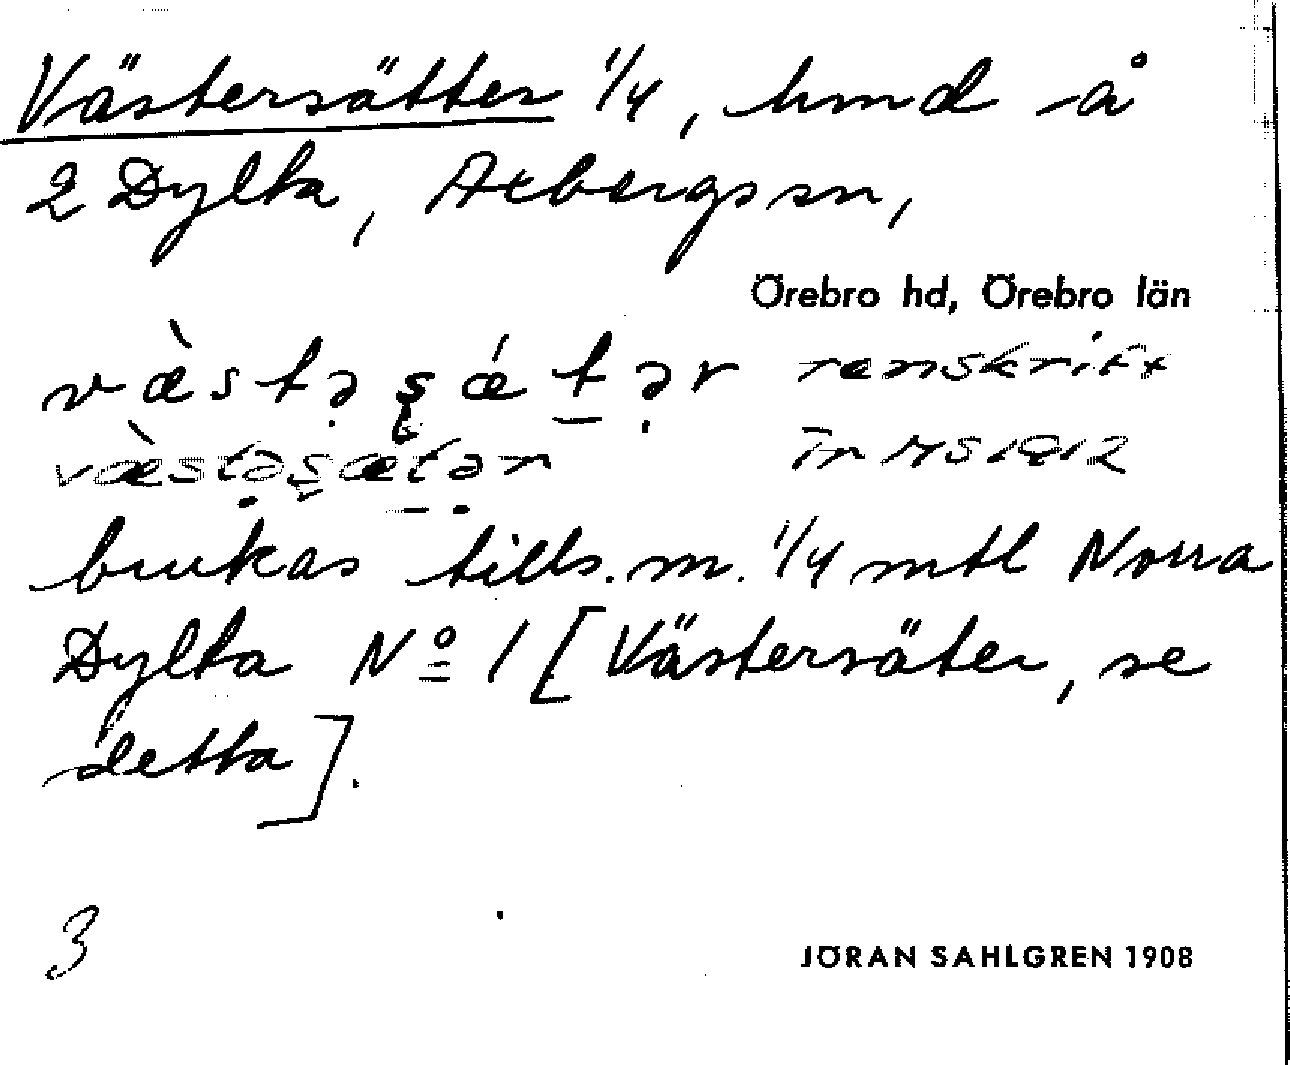 Västersätter 1/4, hmd å
2 Dylta, Axbergs sn,
Örebro hd, Örebro län
væ̀stə̣ʂǽt̲ə̣r renskrift
væ̀stə̣ʂæt̲ə̣r för MS 1912
brukas tills. m. 1/4 mtl Norra
Dylta Nº 1 [Västersäter, se
detta].
3
JÖRAN SAHLGREN 1908